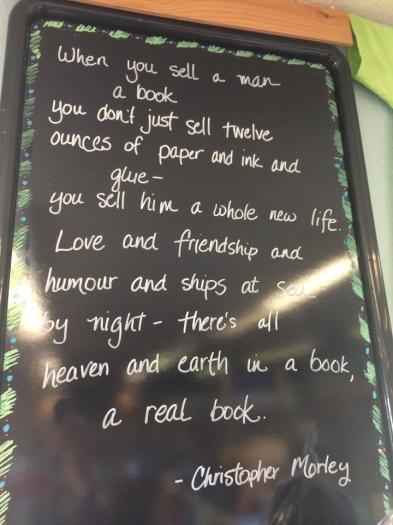 When you sell a man
a book
you don't just sell twelve
ounces of paper and ink and
glue -
you sell him a whole new life.
Love and friendship and
humour and ships at sea
by night - there's all
heaven and earth in a book,
a real book.
- Christopher Morley